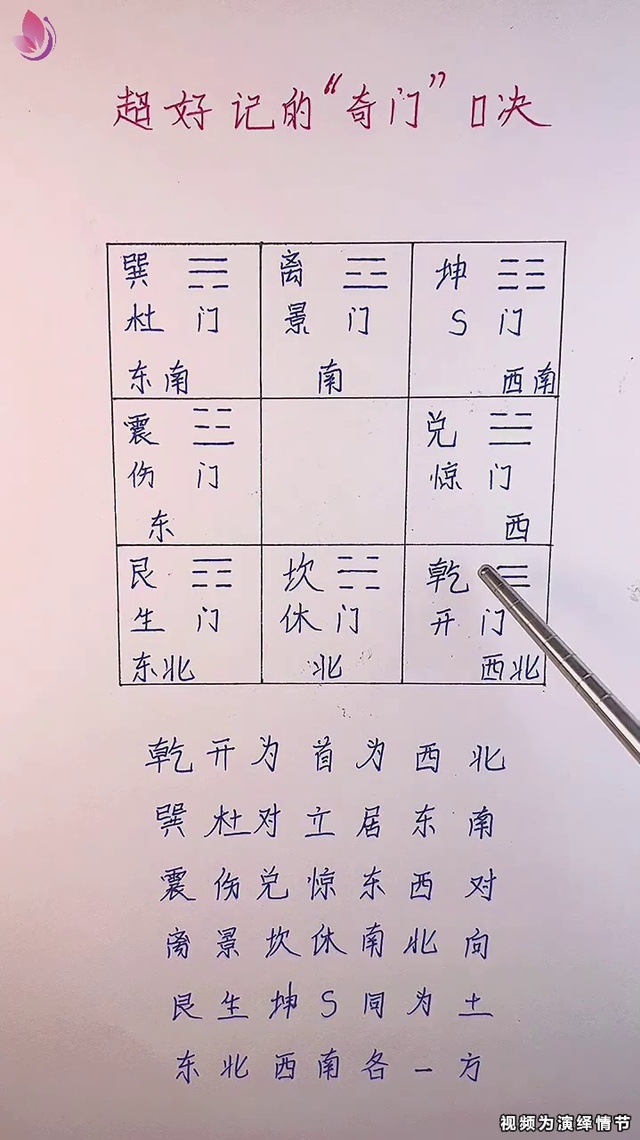 超好记的“奇门”口决
巽 离 坤
杜门 景门 S门
东南 南 西南
震 兑
伤门 惊门
东 西
艮 坎 乾
生门 休门 开门
东北 北 西北
乾开为首为西北
巽杜对立居东南
震伤兑惊东西对
离景坎休南北向
艮生坤S同为土
东北西南各一方
视频为演绎情节